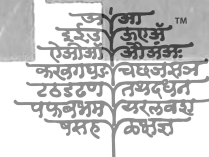 अ आ TM
इ ई उ ऊ ए ॲ
ऐ ओ ऑ औ अं अः
क ख ग घ ङ च छ ज झ ञ
ट ठ ड ढ ण त थ द ध न
प फ ब भ म य र ल व श
ष स ह ळ क्ष ज्ञ